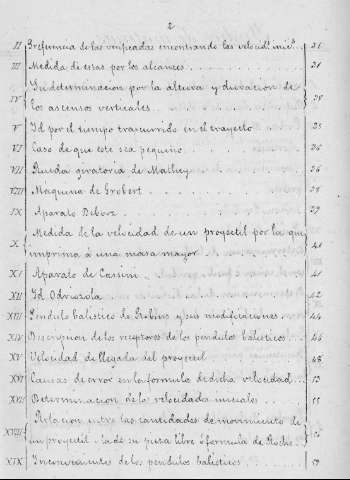 2
II Preferencia de las empleadas encontrando las velocid.s inic.s 21
III Medida de estas por los alcances 21
Su determinacion por la altura y duracion de
IV los ascensos verticales 25
V Id por el tiempo trascurrido en el trayecto 25
VI Caso de que este sea pequeño 26
VII Rueda giratoria de Mathey 26
VIII Maquina de Grobert 28
IX Aparato Debooz 29
Medida de la velocidad de un proyectil por la que
X imprima á una masa mayor 41
XI Aparato de Cassini 41
XII Id Odriozola 42
XIII Pendulo balistico de Robins y sus modificaciones 44
XIV Descripcion de los receptores de los pendulos balisticos 46
XV Velocidad de llegada del proyectil 48
XVI Causas de error en la formula de dicha velocidad 53
XVII Determinacion de las velocidades iniciales 55
Relacion entre las cantidades de movimiento de
XVIII un proyectil y la de su pieza libre ó formula de Roche
XIX Inconvenientes de los pendulos balisticos 59